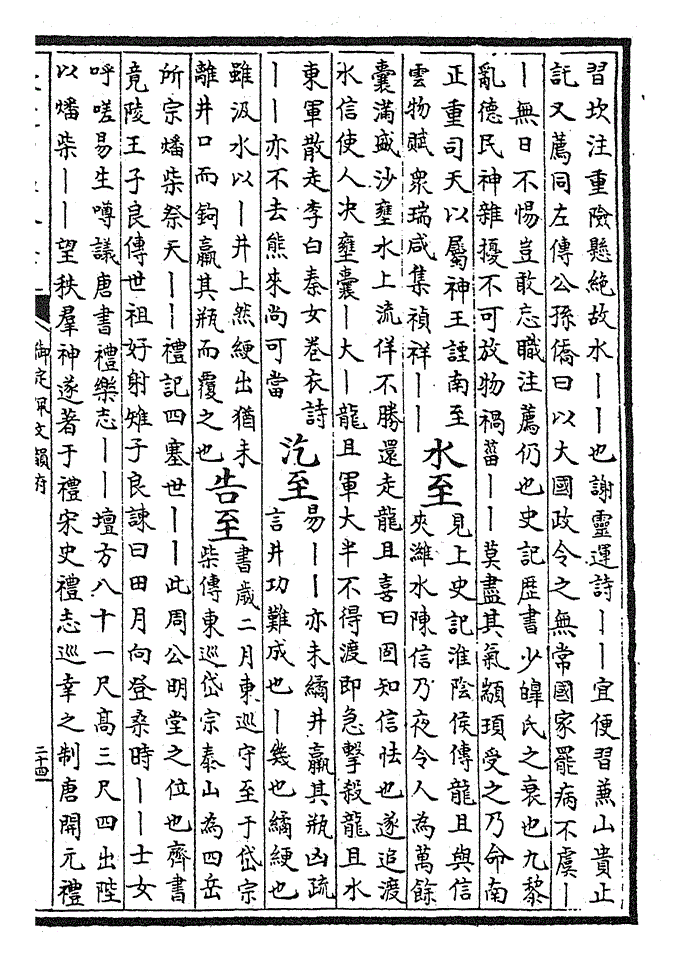 習坎注重險懸絶故水丨丨也謝靈運詩丨丨宜便習兼山貴止
託又薦同左傳公孫僑曰以大國政令之無常國家罷病不虞丨
丨無日不惕豈敢忘職注薦仍也史記歴書少皥氏之衰也九黎
亂德民神雜擾不可放物禍菑丨丨莫盡其氣顓頊受之乃命南
正重司天以屬神王諲南至
雲物賦衆瑞咸集禎祥丨丨
水至
見上史記淮陰侯傳龍且與信
夾濰水陳信乃夜令人為萬餘
囊滿盛沙壅水上流佯不勝還走龍且喜曰固知信怯也遂追渡
水信使人决壅囊丨大丨龍且軍大半不得渡即急擊殺龍且水
東軍散走李白秦女卷衣詩
丨丨亦不去熊來尚可當
汔至
易丨丨亦未繘井羸其瓶凶疏
言井功難成也丨幾也繘綆也
雖汲水以丨井上然綆出猶未
離井口而鉤羸其瓶而覆之也
告至
書歳二月東巡守至于岱宗
柴傳東巡岱宗泰山為四岳
所宗燔柴祭天丨丨禮記四塞世丨丨此周公明堂之位也齊書
竟陵王子良傳世祖好射雉子良諫曰田月向登桑時丨丨士女
呼嗟易生噂議唐書禮樂志丨丨壇方八十一尺髙三尺四出陛
以燔柴丨丨望秩羣神遂著于禮宋史禮志巡幸之制唐開元禮
御定佩文韻府
二十四